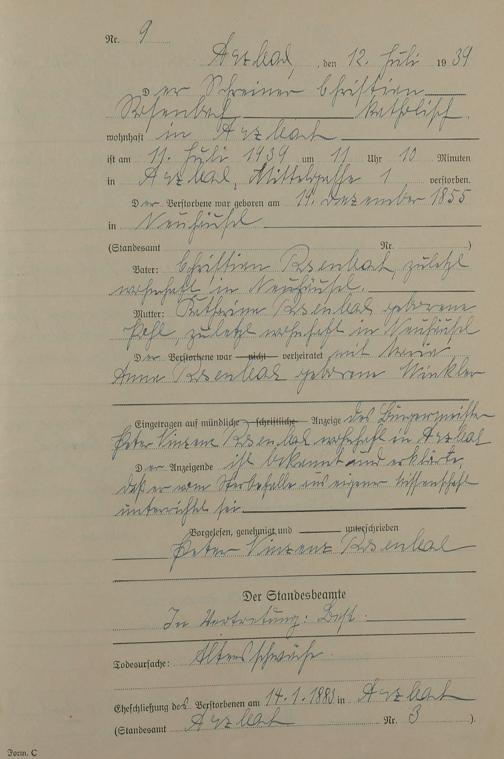 Nr. 9
Arzbach, den 12. Juli 1939
Der Schreiner Christian
Rosenbach katholisch
wohnhaft in Arzbach
ist am 11. Juli 1939 um 11 Uhr 10 Minuten
in Arzbach, Mittelgasse 1 verstorben.
Der Verstorbene war geboren am 19. Dezember 1855
in Neuhäusel
(Standesamt Nr. )
Vater: Christian Rosenbach, zuletzt
wohnhaft in Neuhäusel.
Mutter: Katharina Rosenbach geborene
Pohl, zuletzt wohnhaft in Neuhäusel
Der Verstorbene war nicht verheiratet mit Maria
Anna Rosenbach geborene Winkler
Eingetragen auf mündliche schriftliche Anzeige des Bürgermeister
Peter Vinzenz Rosenbach wohnhaft in Arzbach
Der Anzeigende ist bekannt und erklärte,
daß er vom Sterbefalle aus eigener Wissenschaft
unterrichtet sei
Vorgelesen, genehmigt und unterschrieben
Peter Vinzenz Rosenbach
Der Standesbeamte
In Vertretung:
Todesursache: Altersschwäche.
Eheschließung des Verstorbenen am 14.1.1883 in Arzbach
(Standesamt Arzbach Nr. 3 ).
Form. C